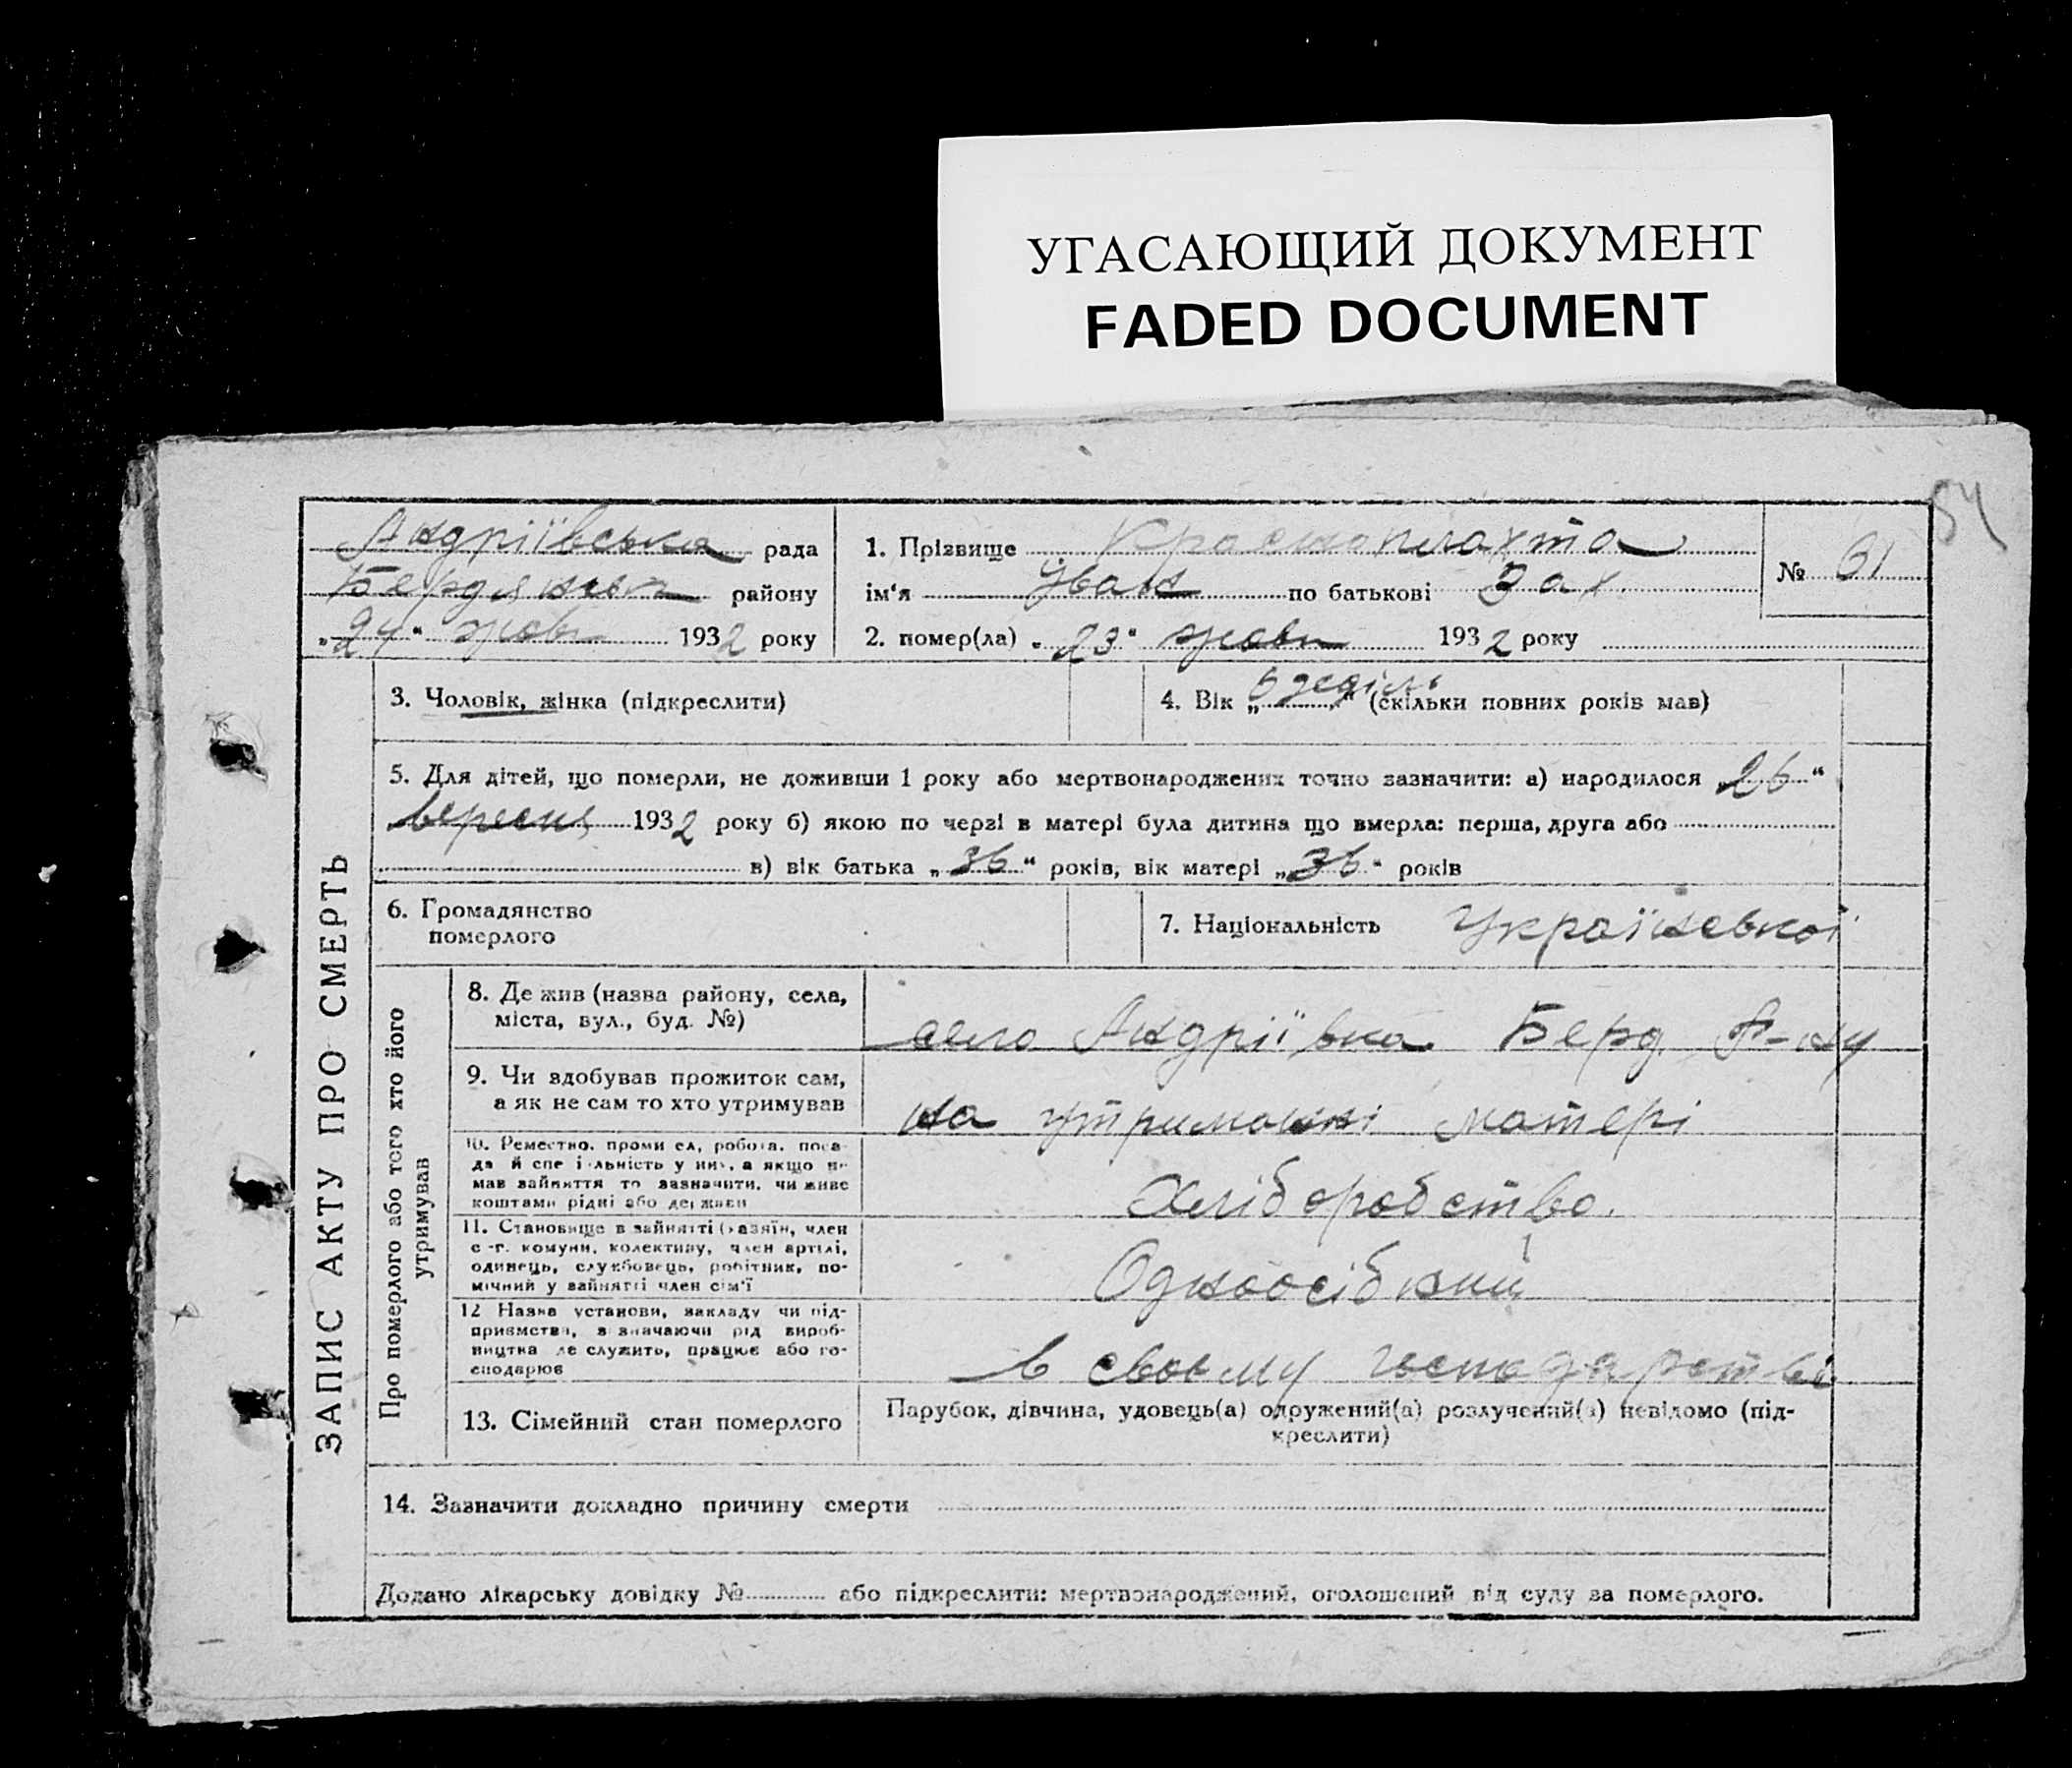 УГАСАЮЩИЙ ДОКУМЕНТ
FADED DOCUMENT
54
Андріївська рада
Бердянськ району
„24“ жовт 1932 року
1. Прізвище Краснoплахта
ім‘я Іван по батькові Зах.
2. помер(ла) „23“ жовтн 1932 року
№ 61
ЗАПИС АКТУ ПРО СМЕРТЬ
3. Чоловік, жінка (підкреслити)
4. Вік „ “ (скільки повних років мав)
5. Для дітей, що померли, не доживши 1 року або мертвонароджених точно зазначити: а) народилося „26“
вересня 1932 року б) якою по черзі в матері була дитина що вмерла: перша, друга або
в) вік батька „36“ років, вік матері „36“ років
6. Громадянство
померлого
7. Національність Української
Про померлого або того хто його
утримував
8. Де жив (назва району, села,
міста, вул., буд. №)
село Андріївка Берд. Р-ну
9. Чи здобував прожиток сам,
а як не сам то хто утримував
на утриманні матері
10. Ремество, промисел, робота, поса-
да й спеціальність у них, а якщо не
мав зайняття то зазначити, чи живе
коштами рідні або держави
Хліборобство.
11. Становище в зайнятті (хазяїн, член
с.-г. комуни, колективу, член артілі,
одинець, службовець, робітник, по-
мічний у зайнятті член сім'ї
Одноосібний
12 Назва установи, закладу чи під-
приємства, зазначаючи рід вироб-
ництва де служить, працює або го-
сподарює
в своєму господарстві
13. Сімейний стан померлого
Парубок, дівчина, удовець(а) одружений(а) розлучений(а) невідомо (під-
креслити)
14. Зазначити докладно причину смерти
Додано лікарську довідку № або підкреслити: мертвонароджений, оголошений від суду за померлого.